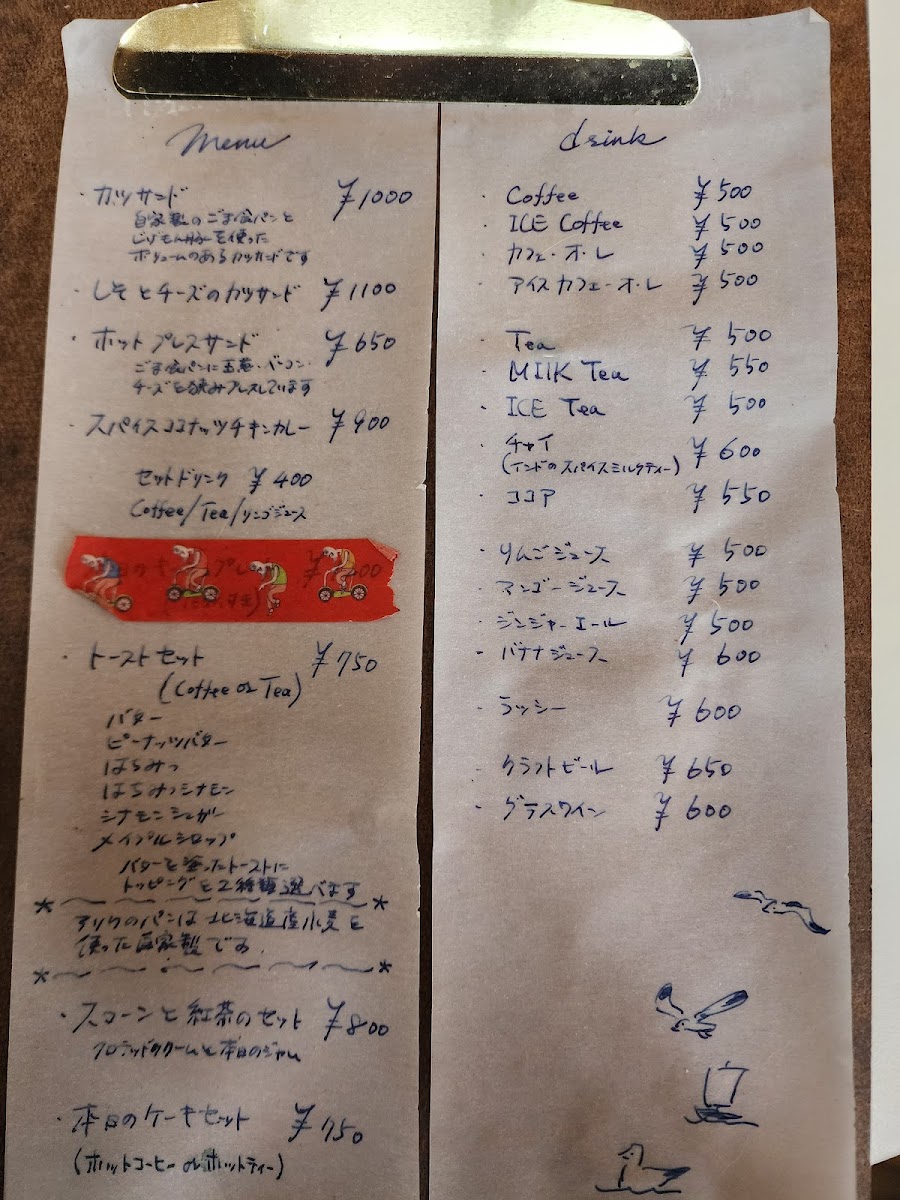 Menu
・カツサンド ¥1000
自家製のごま食パンと
じげもん豚を使った
ボリュームのあるカツサンドです
・しそとチーズのカツサンド ¥1100
・ホットプレスサンド ¥650
ごま食パンに玉葱・ベーコン・
チーズを挟みプレスしています
・スパイスココナッツチキンカレー ¥900
セットドリンク ¥400
Coffee/Tea/リンゴジュース
・トーストセット ¥750
(Coffee or Tea)
バター
ピーナッツバター
はちみつ
はちみつシナモン
シナモンシュガー
メイプルシロップ
バターを塗ったトーストに
トッピングを2種類選べます
のパンは北海道産小麦を
使った自家製です
・スコーンと紅茶のセット ¥800
クロテッドクリームと本日のジャム
・本日のケーキセット ¥750
(ホットコーヒー or ホットティー)
drink
・Coffee ¥500
・ICE Coffee ¥500
・カフェ・オ・レ ¥500
・アイスカフェ・オ・レ ¥500
・Tea ¥500
・MILK Tea ¥550
・ICE Tea ¥500
・チャイ ¥600
(インドのスパイスミルクティー)
・ココア ¥550
・りんごジュース ¥500
・マンゴージュース ¥500
・ジンジャーエール ¥500
・バナナジュース ¥600
・ラッシー ¥600
・クラフトビール ¥650
・グラスワイン ¥600